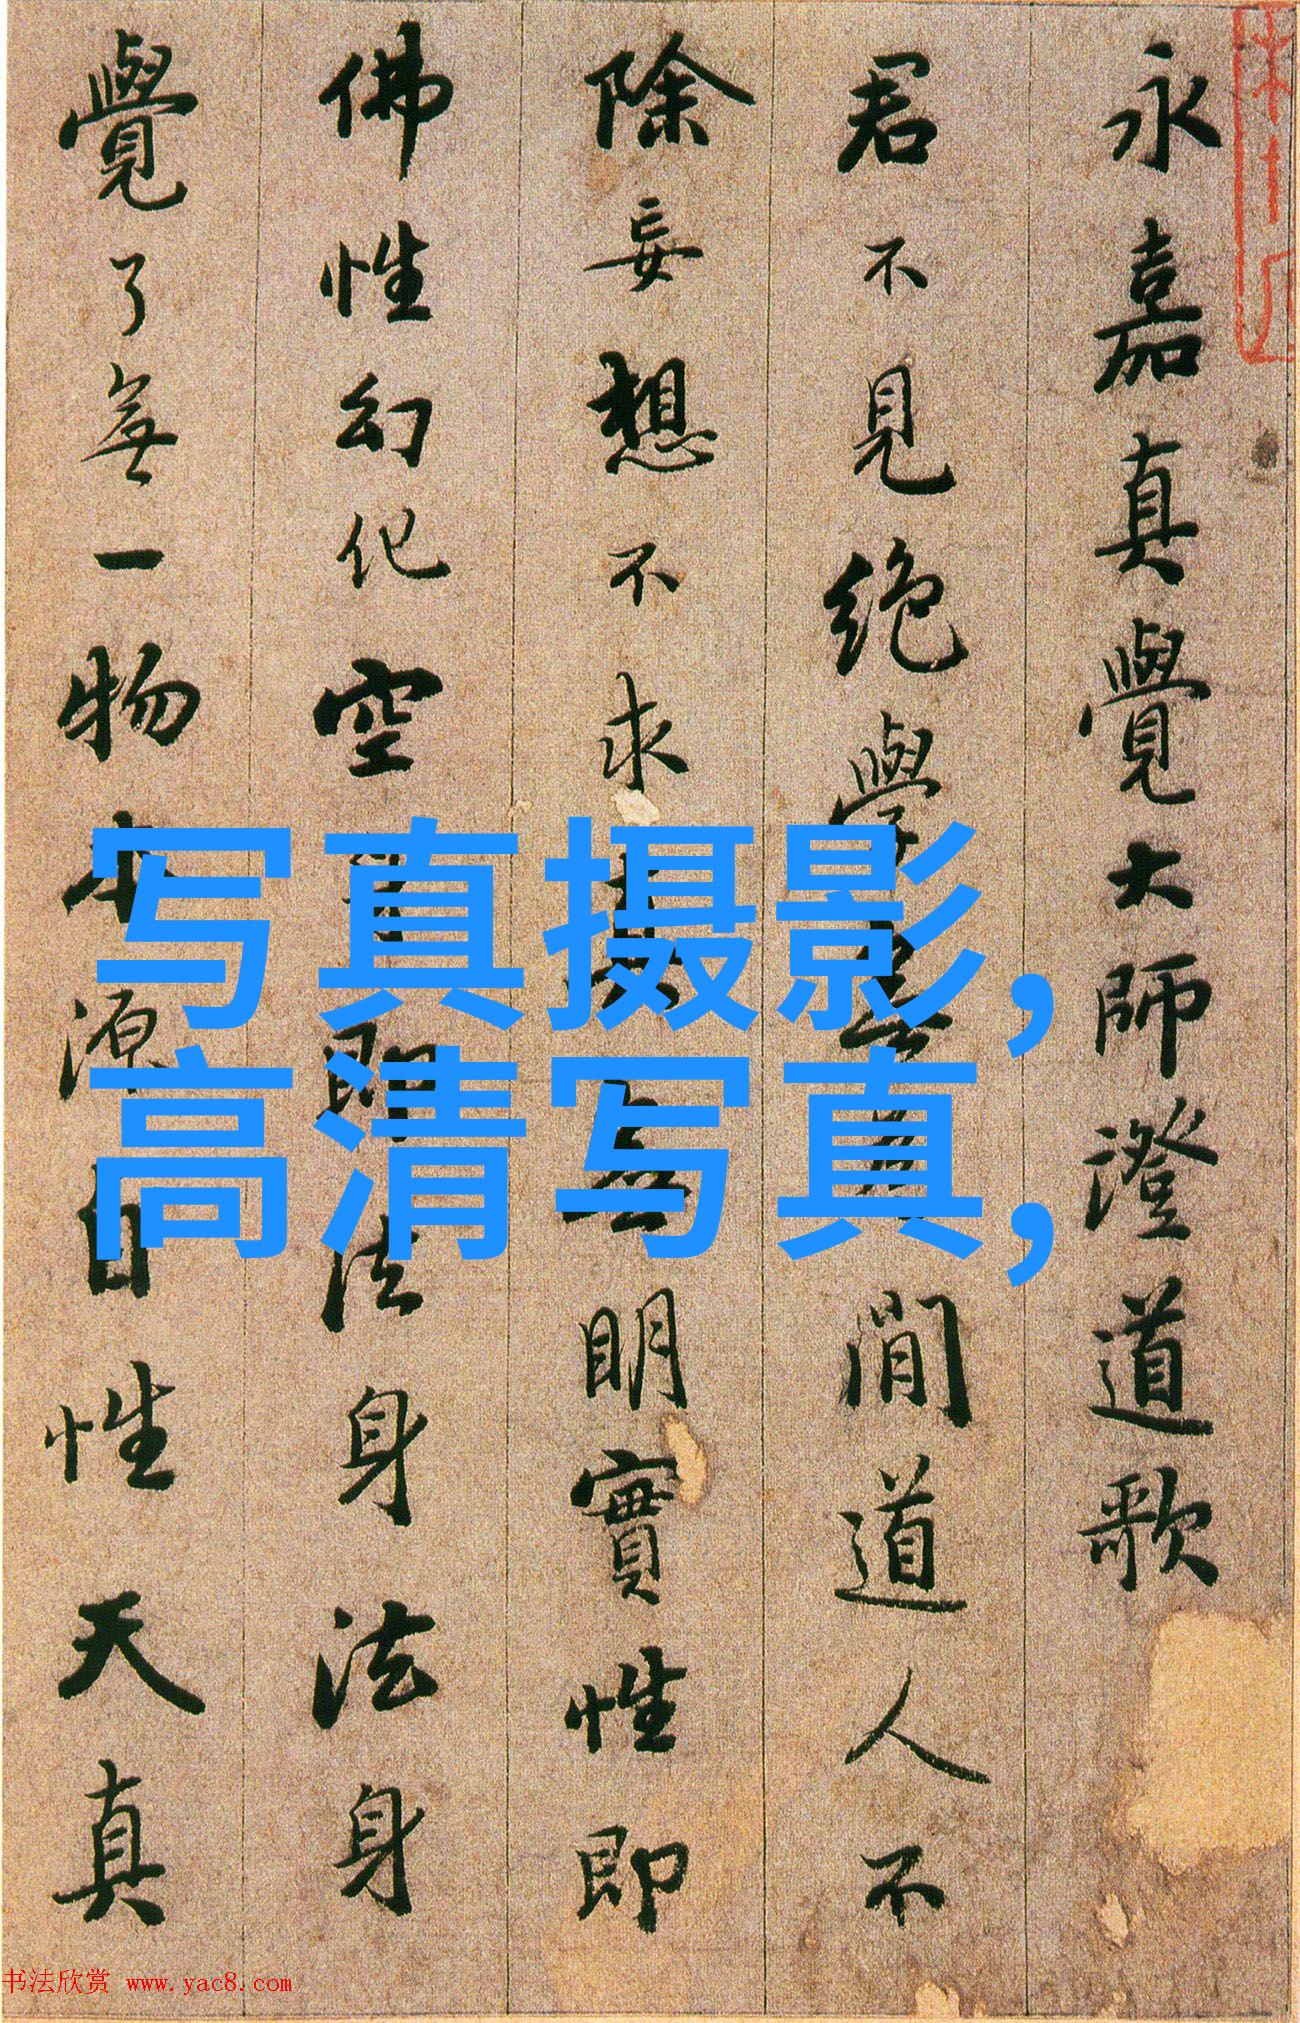 永嘉真覺大師澄道歌
君不見絕學閒道人不
除妄想不求無明實性即
佛性幻化空即法身法身
覺了無一物本源自性天真
写真摄影,
高清写真,
书法欣赏 www.yac8.com